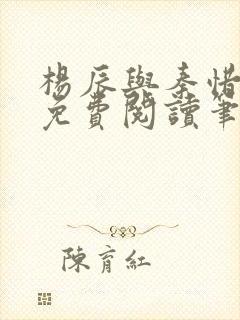 楊辰與秦惜
免費閱讀筆
陳育紅